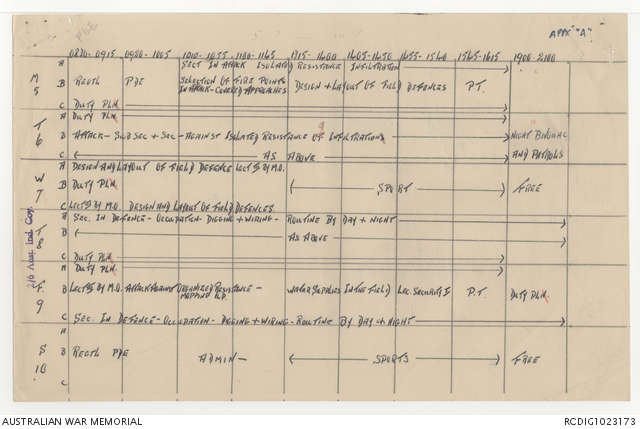 APPX "A"
PDE
0830-0915 0920-1005 1010-1055 1100-1145 1515-1600 1605-1650 1655-1540 1545-1615 1900-2100
M 5
A SECT IN ATTACK ISOLATED RESISTANCE INFILTRATION
B REGTL PDE SELECTION OF FIRE POINTS DESIGN + LAYOUT OF FIELD DEFENCES P.T.
IN ATTACK-COVERED APPROACHES
C DUTY PLN.
T 6
A DUTY PLN.
B ATTACK - SUB SEC + SEC - AGAINST ISOLATED RESISTANCE OF INFILTRATION NIGHT BIVOUAC
C AS ABOVE AND PATROLS
W 7
A DESIGN AND LAYOUT OF FIELD DEFENCE LECT BY M.O.
B DUTY PLN. SPORT FREE
C LECT BY M.O. DESIGN AND LAYOUT OF FIELD DEFENCES.
T 8
A SEC. IN DEFENCE - OCCUPATION - DIGGING + WIRING - ROUTINE BY DAY + NIGHT
B AS ABOVE
C DUTY PLN.
2/6 Aust Ind Coy.
F 9
A DUTY PLN.
B LECT BY M.O. ATTACK AGAINST ORGANIZED RESISTANCE - WATER SUPPLIES IN THE FIELD LEC. SECURITY P.T. DUTY PLN.
MAPPING
C SEC. IN DEFENCE - OCCUPATION - DIGGING + WIRING - ROUTINE BY DAY + NIGHT
S 10
A
B REGTL PDE ADMIN - SPORTS FREE
C
AUSTRALIAN WAR MEMORIAL RCDIG1023173